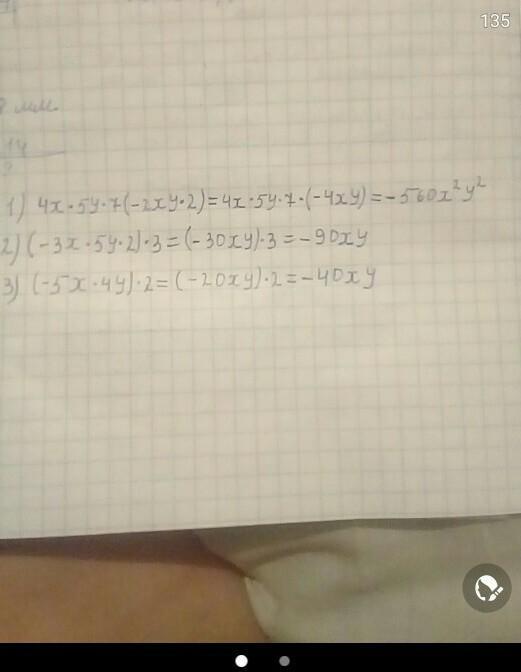 135
мм
14
1) 4x·5y·7(-2xy·2)=4x·5y·7·(-4xy)=-560x²y²
2) (-3x·5y·2)·3=(-30xy)·3=-90xy
3) (-5x·4y)·2=(-20xy)·2=-40xy